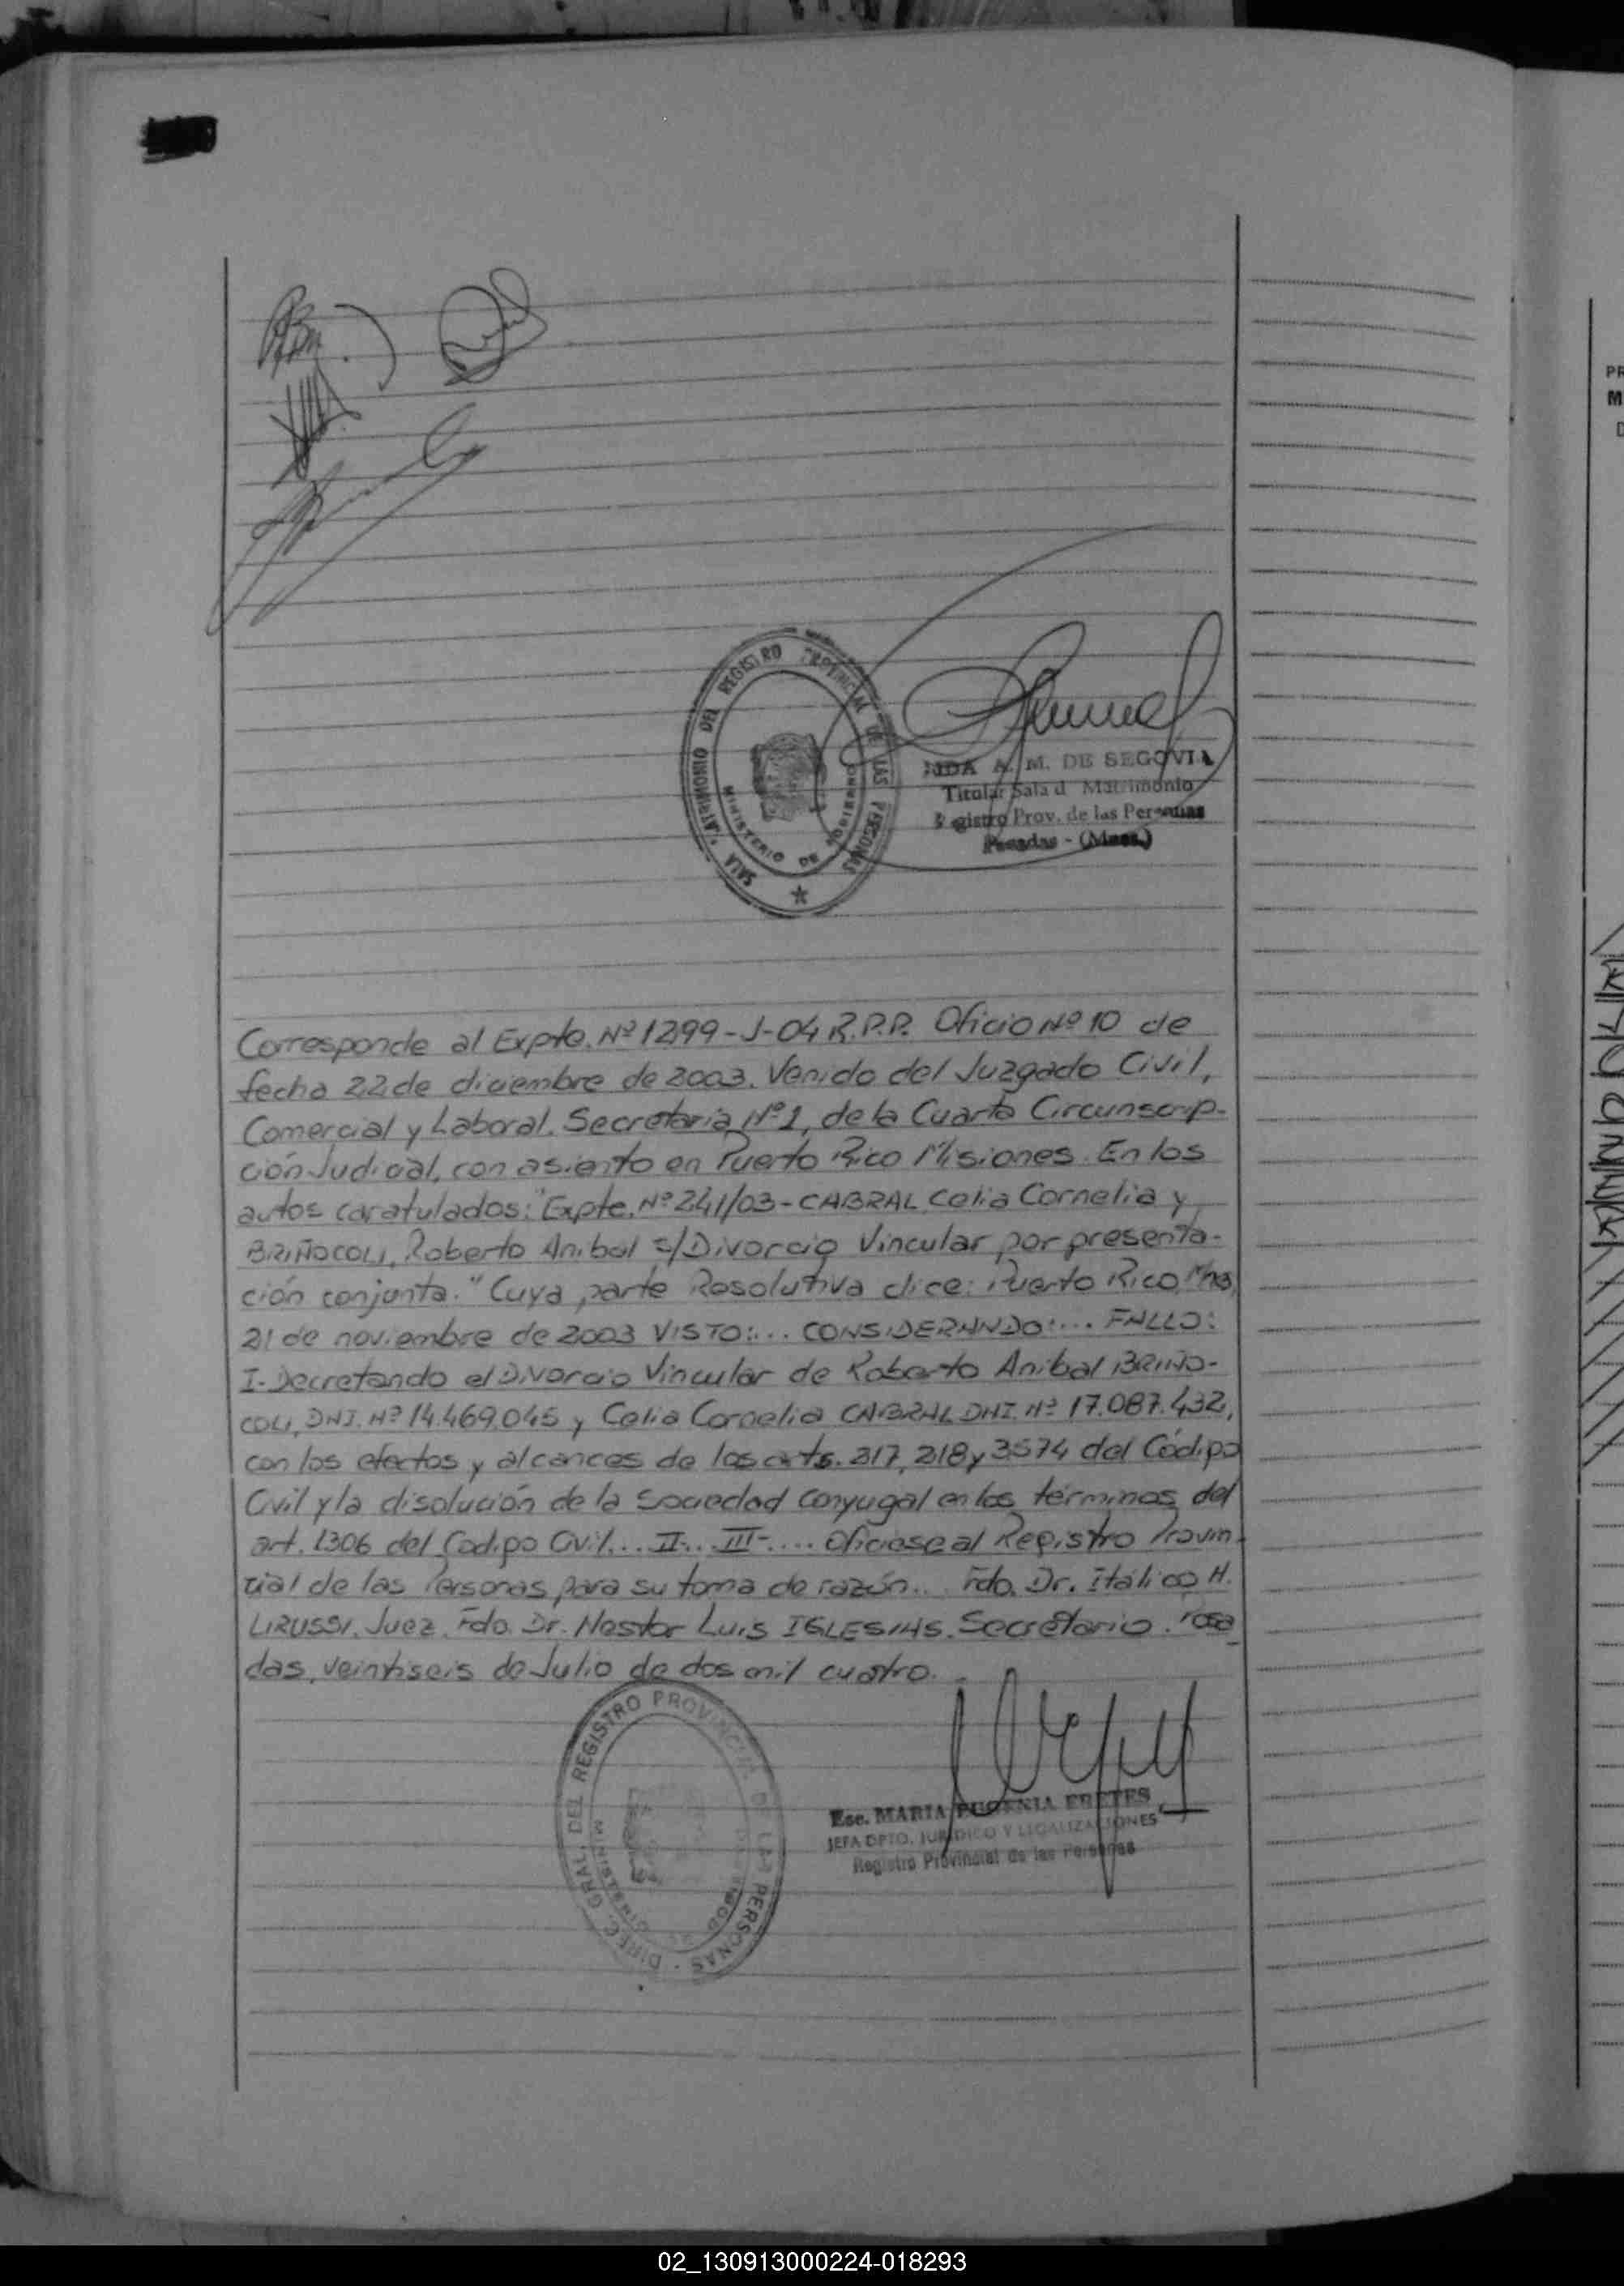 SALA MATRIMONIO DEL REGISTRO PROVINCIAL DE LAS PERSONAS
MINISTERIO DE GOBIERNO
A. M. DE SEGOVIA
Titular Sala d Matrimonio
Registro Prov. de las Personas
Posadas - (Mnes.)
Corresponde al Expte. Nº 1299-J-04 R.P.P. Oficio Nº 10 de
fecha 22 de diciembre de 2003. Venido del Juzgado Civil,
Comercial y Laboral. Secretaria Nº 1, de la Cuarta Circunscrip-
ción Judicial, con asiento en Puerto Rico Misiones. En los
autos caratulados: "Expte. Nº 241/03 - CABRAL Celia Cornelia y
BRIÑOCOLI, Roberto Anibal s/Divorcio Vincular por presenta-
ción conjunta." Cuya parte Resolutiva dice: Puerto Rico, Mnes,
21 de noviembre de 2003 VISTO:... CONSIDERANDO:... FALLO:
I- Decretando el Divorcio Vincular de Roberto Anibal BRIÑO-
COLI, DNI. Nº 14.469.045 y Celia Cornelia CABRAL DNI. Nº 17.087.432,
con los efectos y alcances de los arts. 217, 218 y 3574 del Código
Civil y la disolución de la Sociedad Conyugal en los términos del
art. 1306 del Codigo Civil... II-... III-.... Oficiese al Registro Provin-
cial de las Personas para su toma de razón... Fdo. Dr. Itálico H.
LIRUSSI. Juez. Fdo. Dr. Nestor Luis IGLESIAS. Secretario. Posa-
das, veintiseis de Julio de dos mil cuatro.
DIREC. GRAL. DEL REGISTRO PROVINCIAL DE LAS PERSONAS
MINISTERIO
Esc. MARIA EUGENIA
JEFA DPTO. JURIDICO Y LEGALIZACIONES
Registro Provincial de las Personas
PR
M
D
02_130913000224-018293